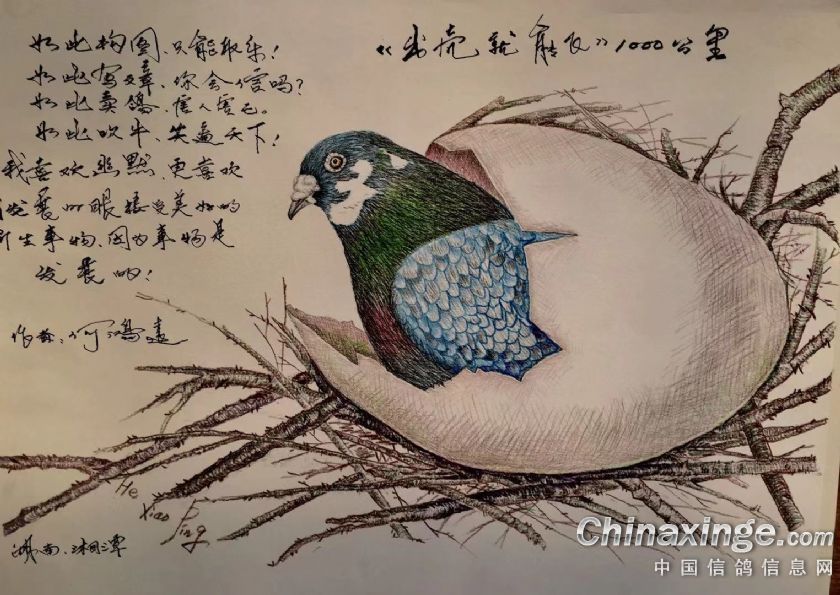 《出壳就能飞》1000公里
如此构图、只能取乐!
如此写文章、你会信吗?
如此卖鸽、害人害己。
如此吹牛、笑遍天下!
我喜欢幽默、更喜欢
发展的眼接受美好的
新生事物、因为事物是
发展的!
作者:何
He
Xiao
Ping
湖南.湘潭
Chinaxinge.com
中国信鸽信息网